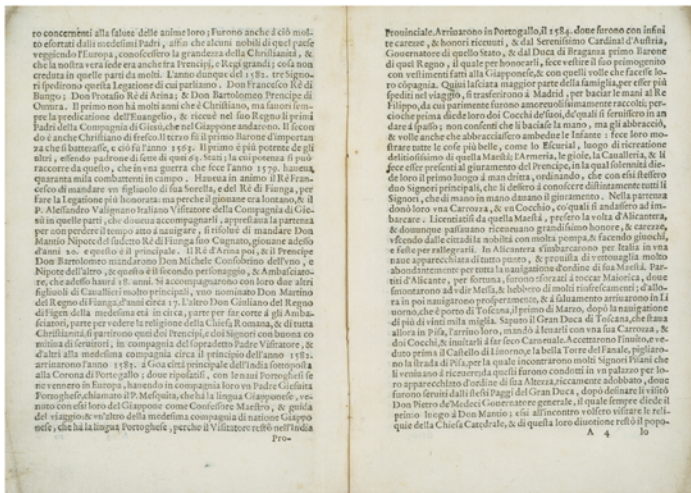 ro concernenti alla salute delle anime loro; Furono anche à ciò mol-
to esortati dalli medesimi Padri, affin che alcuni nobili di quel paese
veggiendo l'Europa, conoscessero la grandezza della Christianità, &
che la nostra vera fede era anche fra Prencipi, e Regi grandi; cosa non
creduta in quelle parti da molti. L'anno dunque del 1582. tre Signo-
ri spedirono questa Legatione di cui parliamo. Don Francesco Rè di
Bungo; Don Protasio Rè di Arima; & Don Bartolomeo Prencipe di
Omura. Il primo non hà molti anni che è Christiano, ma fauorì sem-
pre la predicatione dell'Euangelio, & riceuè nel suo Regno li primi
Padri della Compagnia di Giesù, che nel Giappone andarono. Il secon
do è anche Christiano di fresco. Il terzo fù il primo Barone d'importan
za che si battezasse, e ciò fu l'anno 1563. Il primo è più potente de gli
altri, essendo padrone di sette di quei 65. Stati; la cui potenza si può
raccorre da questo, che in vna guerra che fece l'anno 1579. haueua
quaranta mila combattenti in campo. Haueua in animo il Rè Fran-
cesco di mandare vn figliuolo di sua Sorella, e del Rè di Fiunga, per
fare la Legatione più honorata: ma perche il giouane era lontano, & il
P. Alessandro Valignano Italiano Visitatore della Compagnia di Gie-
sù in quelle parti, che doueua accompagnarli, appressaua la partenza
per non perdere il tempo atto à nauigare, si risolse di mandare Don
Mantio Nipote del sudetto Rè di Fiunga suo Cugnato, giouane adesso
d'anni 20. e questo è il principale. Il Rè d'Arima poi, & il Prencipe
Don Bartolomeo mandarono Don Michele Consobrino dell'vno, e
Nipote dell'altro, & questo è il secondo personaggio, & Ambasciato-
re, che adesso haurà 18. anni. Si accompagnarono con loro due altri
figliuoli di Cauallieri molto principali, vno nominato Don Martino
del Regno di Fiunga, d'anni circa 17. L'altro Don Giuliano del Regno
di Figen della medesima età in circa, parte per far corte à gli Amba-
sciatori, parte per vedere la religione della Chiesa Romana, & di tutta
Christianità, si partirono quei doi Prencipi, e doi Signori con buona co
mitiua di seruitori, in compagnia del sopradetto Padre Visitatore, &
d'altri alla medesima compagnia circa il principio dell'anno 1582.
arriuarono l'anno 1583. à Goa città principale dell'India sottoposta
alla Corona di Portogallo; doue riposatisi, con le naui Portoghesi se
ne vennero in Europa, hauendo in compagnia loro vn Padre Giesuita
Portoghese, chiamato il P. Mesquita, che hà la lingua Giapponese, ve-
nuto con essi loro del Giappone come Confessore Maestro, & guida
del viaggio: & vn'altro della medesima compagnia di natione Giappo
nese, che hà la lingua Portoghese, perche il Visitatore restò nell'India
Pro-
Prouinciale. Arriuarono in Portogallo, il 1584. doue furono con infini
te carezze, & honori riceuuti, & dal Serenissimo Cardinal d'Austria,
Gouernatore di quello Stato, & dal Duca di Braganza primo Barone
di quel Regno, il quale per honorarli, fece vestire il suo primogenito
con vestimenti fatti alla Giapponese, & con quelli volle che facesse lo-
ro cõpagnia. Quiui lasciata maggior parte della famiglia, per esser più
spediti nel viaggio, si trasferirono à Madrid, per baciar le mani al Re
Filippo, da cui parimente furono amoreuolissimamente raccolti; per-
cioche prima diede loro doi Cocchi de'suoi, de'quali si seruissero in an
dare à spasso; non consentì che li baciasse la mano, ma gli abbracciò,
& volle anche che abbracciassero ambedue le Infante: fece loro mo-
strare tutte le cose più belle, come lo Escurial, luogo di ricreatione
delitiosissimo di quella Maestà; l'Armeria, le gioie, la Caualleria, & li
fece esser presenti al giuramento del Prencipe, in la qual solennità die-
de loro il primo luogo à man dritta, ordinando, che con essi stessero
duo Signori principali, che li dessero à conoscere distintamente tutti li
Signori, che di mano in mano dauano il giuramento. Nella partenza
donò loro vna Carrozza, & vn Cocchio, co i quali si andassero ad im-
barcare. Licentiatisi da quella Maestà, presero la volta d'Alicantera,
& dounque passauano riceueuano grandissimo honore, & carezze,
vscendo dalle cittadi la nobiltà con molta pompa, & facendo giuochi,
e feste per rallegrarli. In Alicantera s'imbarcarono per Italia in vna
naue apparecchiata di tutto punto, & prouista di vettouaglia molto
abondantemente per tutta la nauigatione d'ordine di sua Maestà. Par-
titi d'Alicante, per fortuna, furono sforzati à toccar Maiorica, doue
smontarono ad vdir Messa, & hebbero di molti rinfrescamenti; d'allo-
ra in poi nauigarono prosperamente, & à saluamento arriuarono in Li
uorno, che è porto di Toscana, il primo di Marzo, dopò la nauigatione
di più di vinti mila miglia. Saputo il Gran Duca di Toscana, che staua
allora in Pisa, l'arriuo loro, mandò à leuarli con vna sua Carrozza, &
doi Cocchi, & inuitarli à far seco Carneuale. Accettarono l'inuito, e ve-
duto prima il Castello di Liuorno, e la bella Torre del Fanale, pigliaro-
no la strada di Pisa, per la quale incontrarono molti Signori Pisani che
li veniuano à riceuere; da questi furono condotti in vn palazzo per lo-
ro apparecchiato d'ordine di sua Altezza, riccamente adobbato, doue
furono seruiti dalli stessi Paggi del Gran Duca, dopò desinare li visitò
Don Pietro de'Medeci Gouernatore generale, il quale sempre diede il
primo luogo à Don Mantio; essi all'incontro volsero visitare le reli-
quie della Chiesa Catedrale, & di questa loro diuotione restò il popo-
A 4 lo